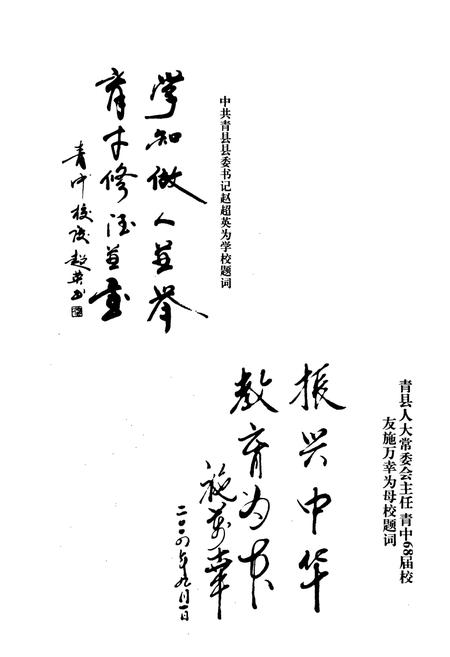 中共青县县委书记赵超英为学校题词
学知做人并举
育才修德并重
青中校 超英书
青县人大常委会主任 青中68届校
友施万幸为母校题词
振兴中华
教育为本
施万幸
二〇〇一年九月一日